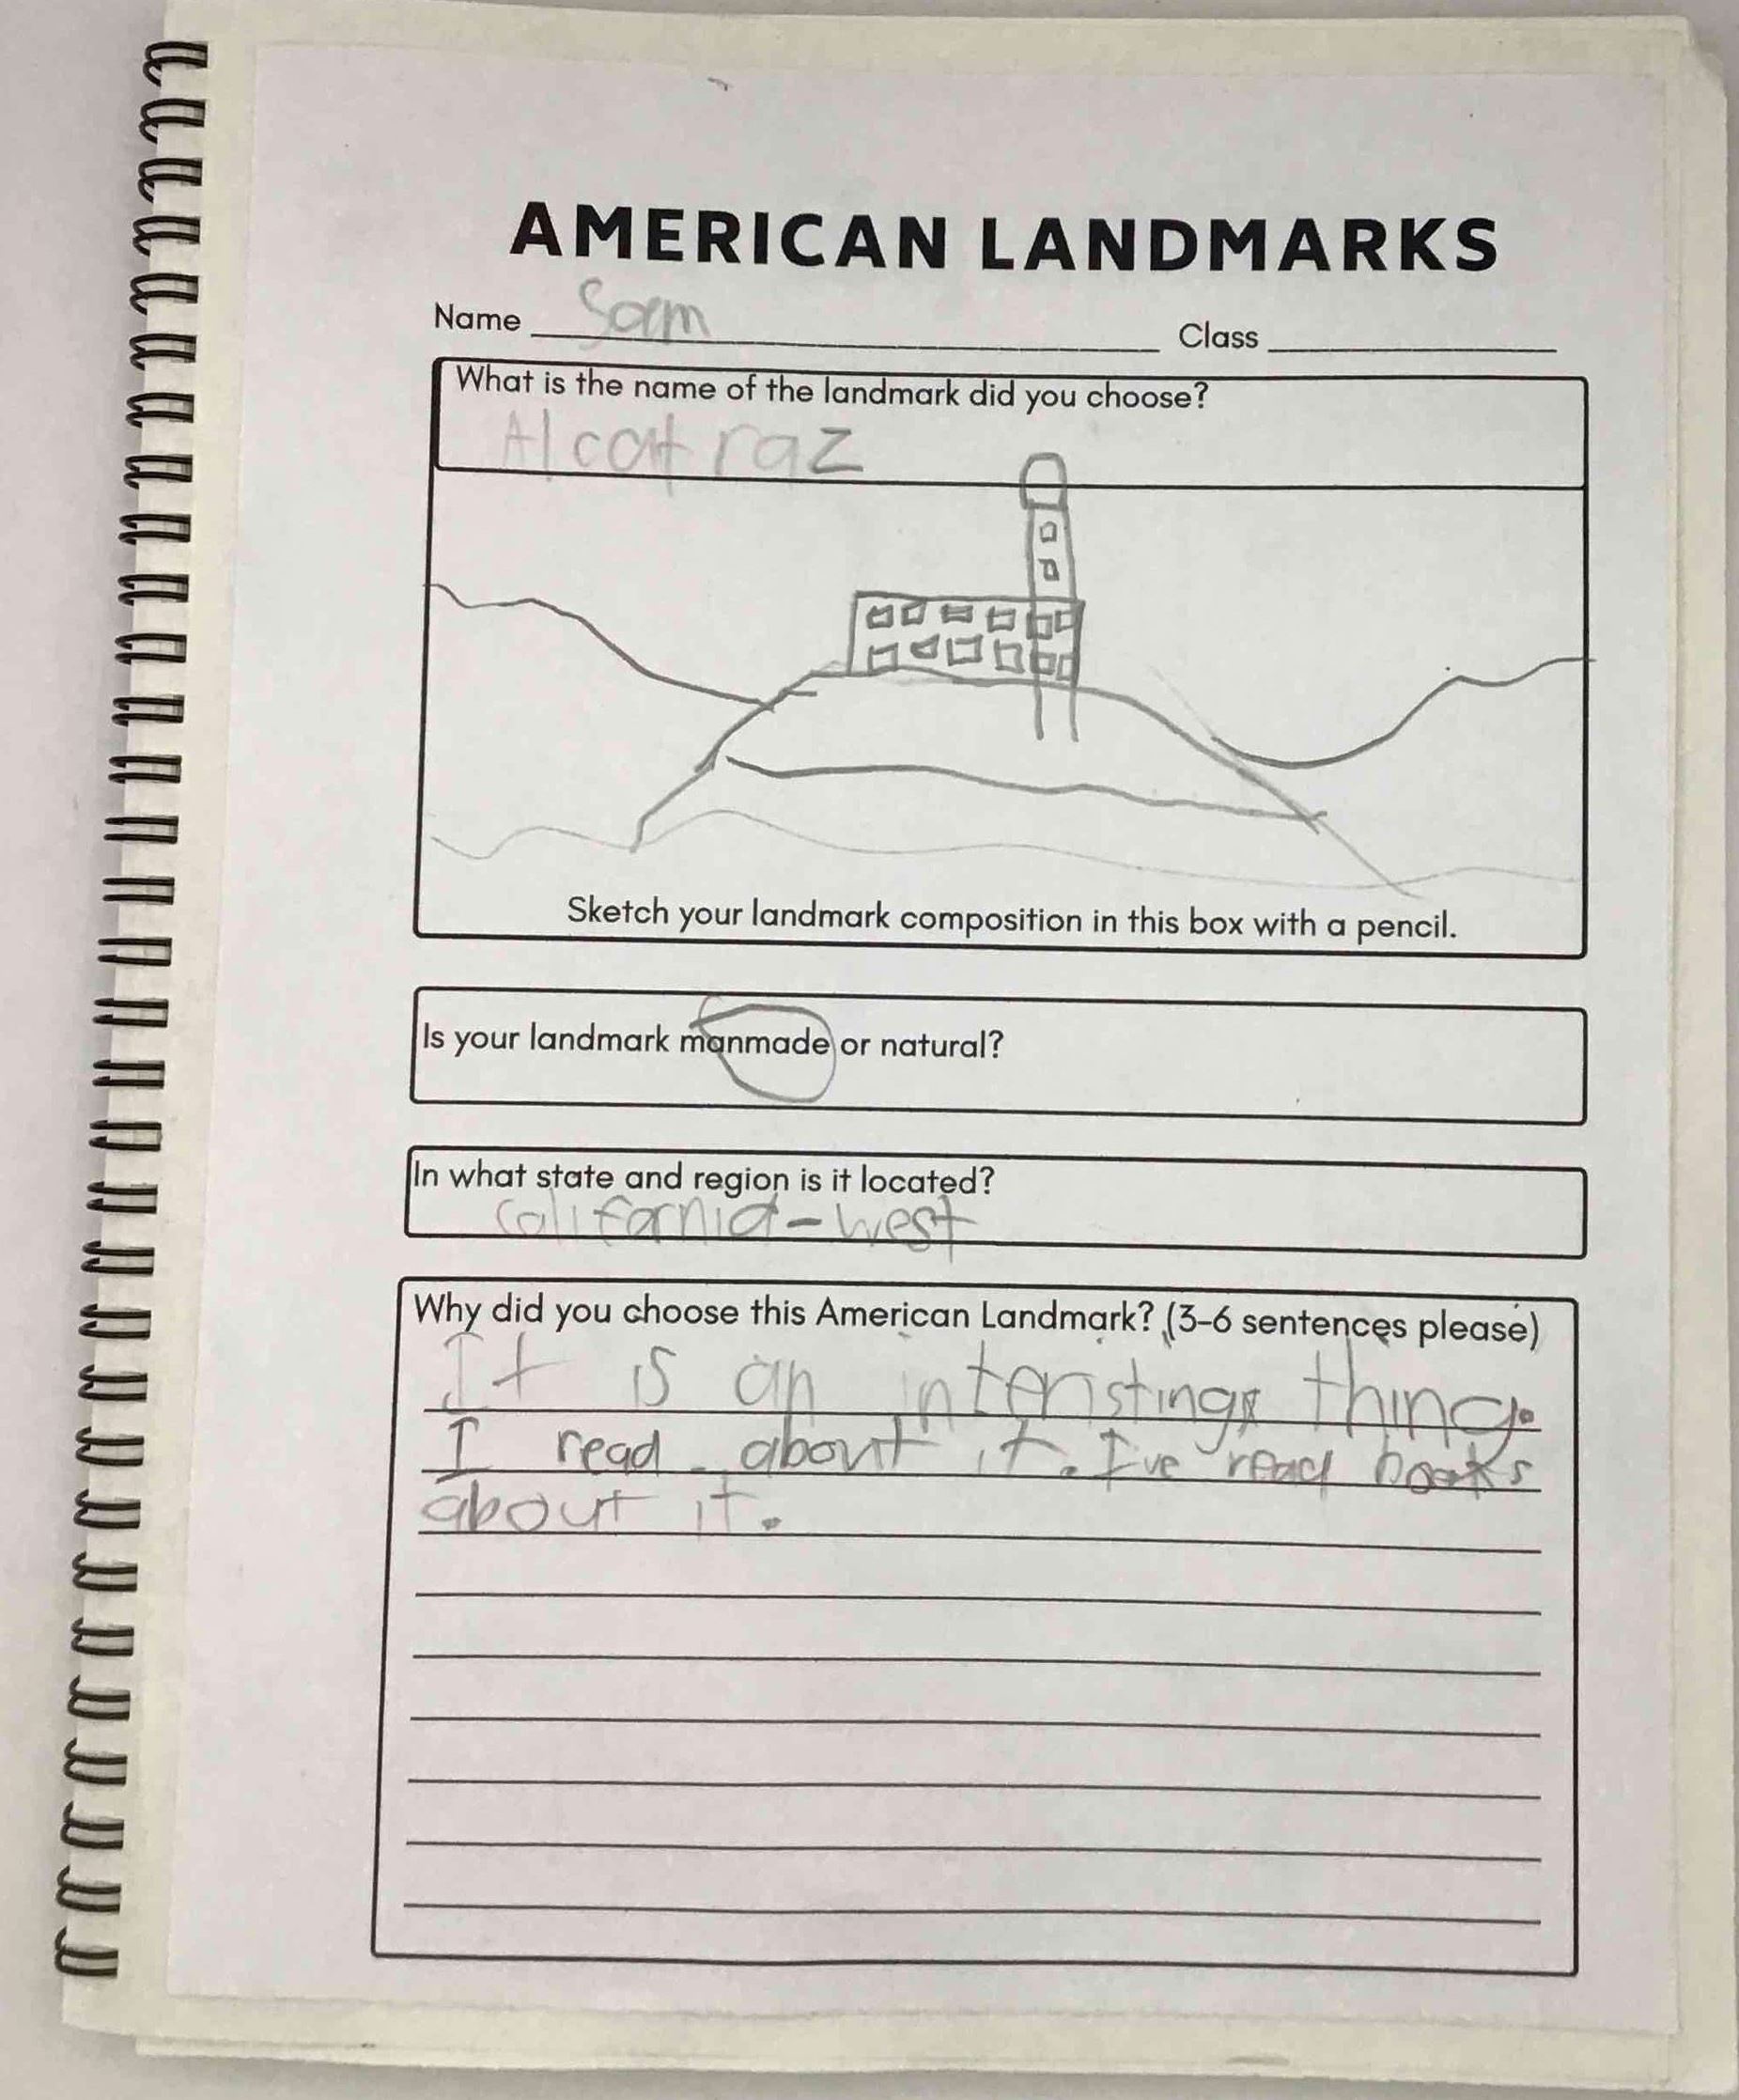 AMERICAN LANDMARKS
Name Sam Class
What is the name of the landmark did you choose?
Alcatraz
Sketch your landmark composition in this box with a pencil.
Is your landmark manmade or natural?
In what state and region is it located?
California-west
Why did you choose this American Landmark? (3-6 sentences please)
It is an interisting thing.
I read about it. I've read books
about it.